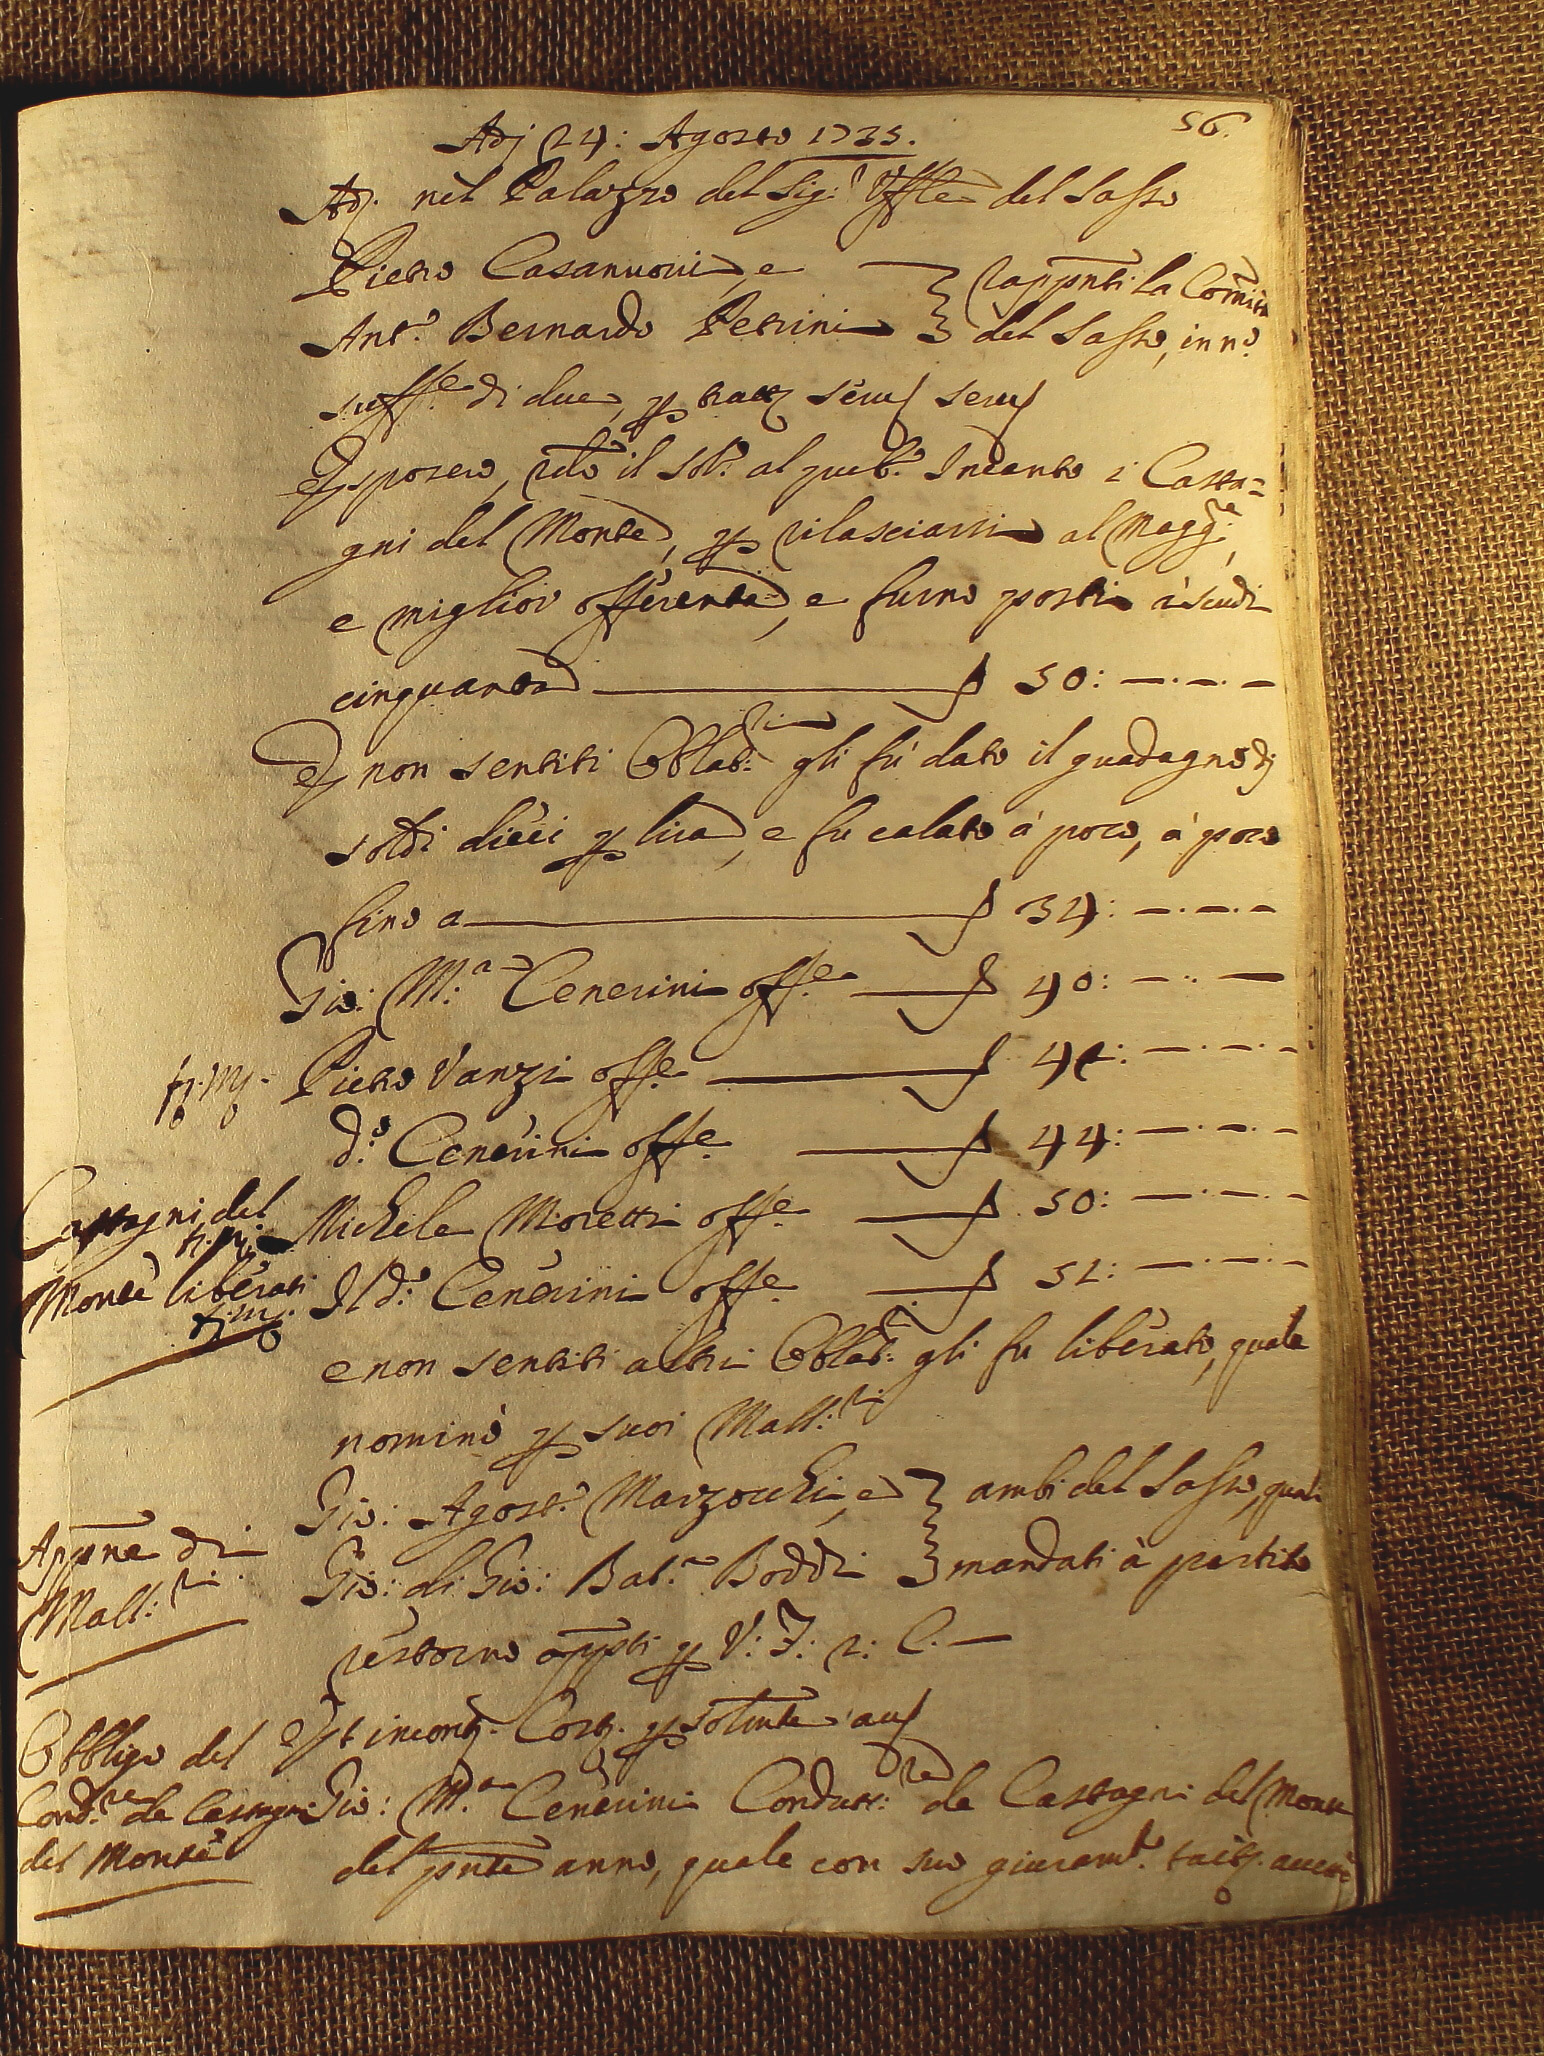 56.
Adj 24: Agosto 1735.
Ad. nel Palazzo del Sig.r Uffle del Sasso
Pietro Casanuoui, e
Ant.o Bernardo Petrini
rappnti la Comità
del Sasso, in n.o
suff.e di due, p
Esposero, il sol.o al pub.o Incanto i Casta=
gni del Monte, p rilasciarsi al Magg.e,
e miglior offerente, e furno posti à scudi
cinquanta 50: —.—.—
E non sentiti Oblat.ri gli fù dato il guadagno di
soldi dieci p lira, e fu calato à poco, à poco
fino a 34: —.—.—
Gio: M.a Cenerini off.e 40: —.—
Pietro Vanzi off.e 42: —.—.—
d.o Cenerini off.e 44: —.—.—
Castagni del
Monte liberati
Michele Moretti off.e 50: —.—.—
Il d.o Cenerini off.e 51: —.—.—
e non sentiti altri Oblat.ri gli fu liberato, quale
nominò p suoi Mall.ri
Gio: Agost.o Marzocchi, e
Gio: di Gio: Bat.a Boddi
ambi del Sasso, quali
mandati à partito
Appne di
Mall.ri
restorno appti p V: F: 2: C.—
Obbligo del
Cond.re de Castagni
del Monte
Gio: M.a Cenerini Condutt.re de Castagni del Monte
del pnte anno, quale con suo giuram.o